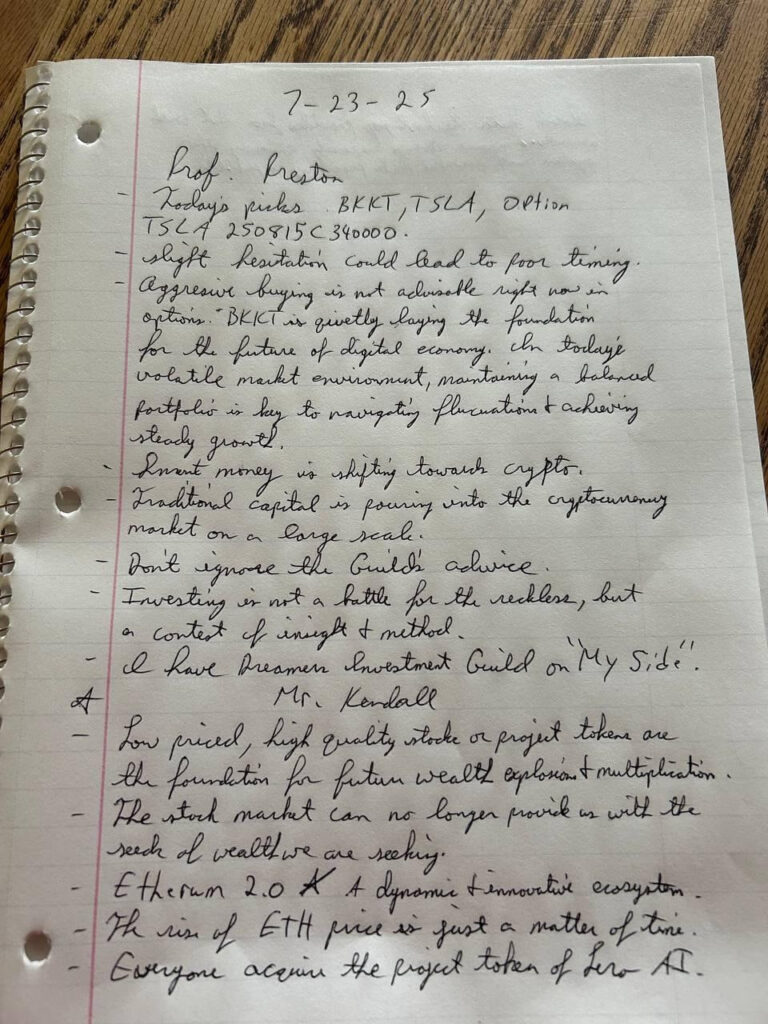 7-23-25
Prof. Preston
- Today's picks BKKT, TSLA, Option
TSLA 250815C340000.
- slight hesitation could lead to poor timing.
- Aggresive buying is not advisable right now in
options. BKKT is quietly laying the foundation
for the future of digital economy. In today's
volatile market enviroment, maintaining a balanced
portfolio is key to navigating flucuations & achieving
steady growth.
- Smart money is shifting towards crypto.
- Traditional capital is pouring into the cryptocurrency
market on a large scale.
- Don't ignore the Guild's advice.
- Investing is not a battle for the reckless, but
a contest of insight & method.
- I have Dreamers Investment Guild on "My Side".
A Mr. Kendall
- Low priced, high quality stocks or project tokens are
the foundation for future wealth explosion & multiplication.
- The stock market can no longer provide us with the
seeds of wealth we are seeking.
- Etherum 2.0 A dynamic & innovative ecosystem.
- The rise of ETH price is just a matter of time.
- Everyone acquire the project token of AI.